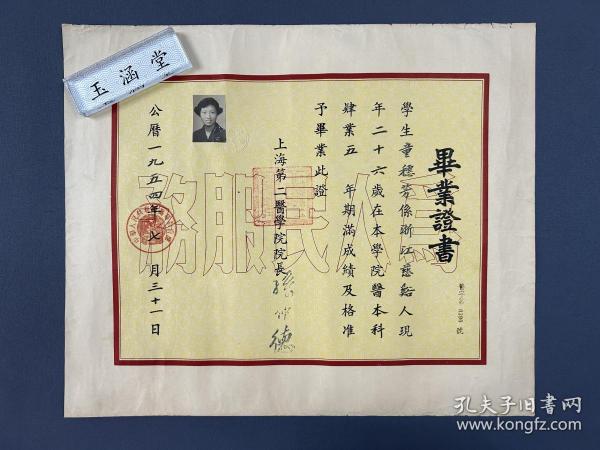 畢業證書
學生童穗芳係浙江慈谿人現
年二十六歲在本學院醫本科
肄業五年期滿成績及格准
予畢業此證
上海第二醫學院院長
公曆一九五四年七月三十一日
為人民服務
玉涵堂
孔夫子旧书网
www.kongfz.com